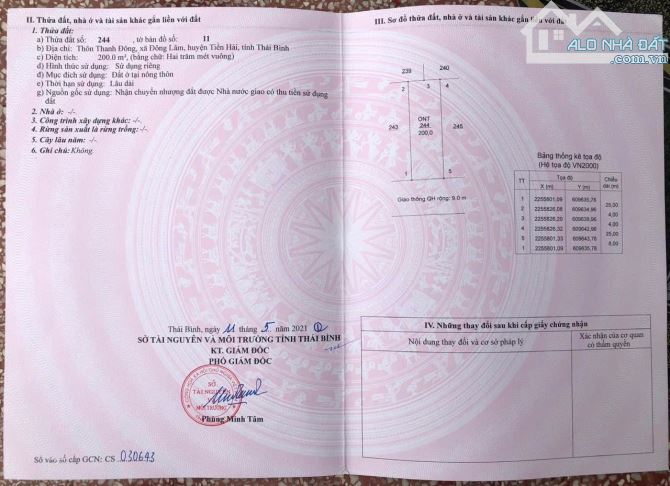 II. Thửa đất, nhà ở và tài sản khác gắn liền với đất
1. Thửa đất:
a) Thửa đất số: 244 , tờ bản đồ số: 11
b) Địa chỉ: Thôn Thanh Đông, xã Đông Lâm, huyện Tiền Hải, tỉnh Thái Bình
c) Diện tích: 200.0 m², (bằng chữ: Hai trăm mét vuông)
d) Hình thức sử dụng: Sử dụng riêng
đ) Mục đích sử dụng: Đất ở tại nông thôn
e) Thời hạn sử dụng: Lâu dài
g) Nguồn gốc sử dụng: Nhận chuyển nhượng đất được Nhà nước giao có thu tiền sử dụng
đất
2. Nhà ở: -/-
3. Công trình xây dựng khác: -/-
4. Rừng sản xuất là rừng trồng: -/-
5. Cây lâu năm: -/-
6. Ghi chú: Không.
Thái Bình, ngày 11 tháng 5 năm 2021
SỞ TÀI NGUYÊN VÀ MÔI TRƯỜNG TỈNH THÁI BÌNH
KT. GIÁM ĐỐC
PHÓ GIÁM ĐỐC
SỞ
TÀI NGUYÊN
MÔI TRƯỜNG
Phùng Minh Tâm
Số vào sổ cấp GCN: CS 030643
III. Sơ đồ thửa đất, nhà ở và tài sản khác gắn liền với đất
ALO NHÀ ĐẤT
239 240
2 3 4
ONT
244
200,0
243 245
1 5
Giao thông QH rộng: 9.0 m
Bảng thống kê tọa độ
(Hệ tọa độ VN2000)
TT Tọa độ Chiều dài (m)
X (m) Y (m)
1 2255801,09 609635,78
25,00
2 2255826,08 609634,96
4,00
3 2255826,20 609638,96
4,00
4 2255826,32 609642,96
25,00
5 2255801,33 609643,78
8,00
1 2255801,09 609635,78
IV. Những thay đổi sau khi cấp giấy chứng nhận
Nội dung thay đổi và cơ sở pháp lý
Xác nhận của cơ quan
có thẩm quyền